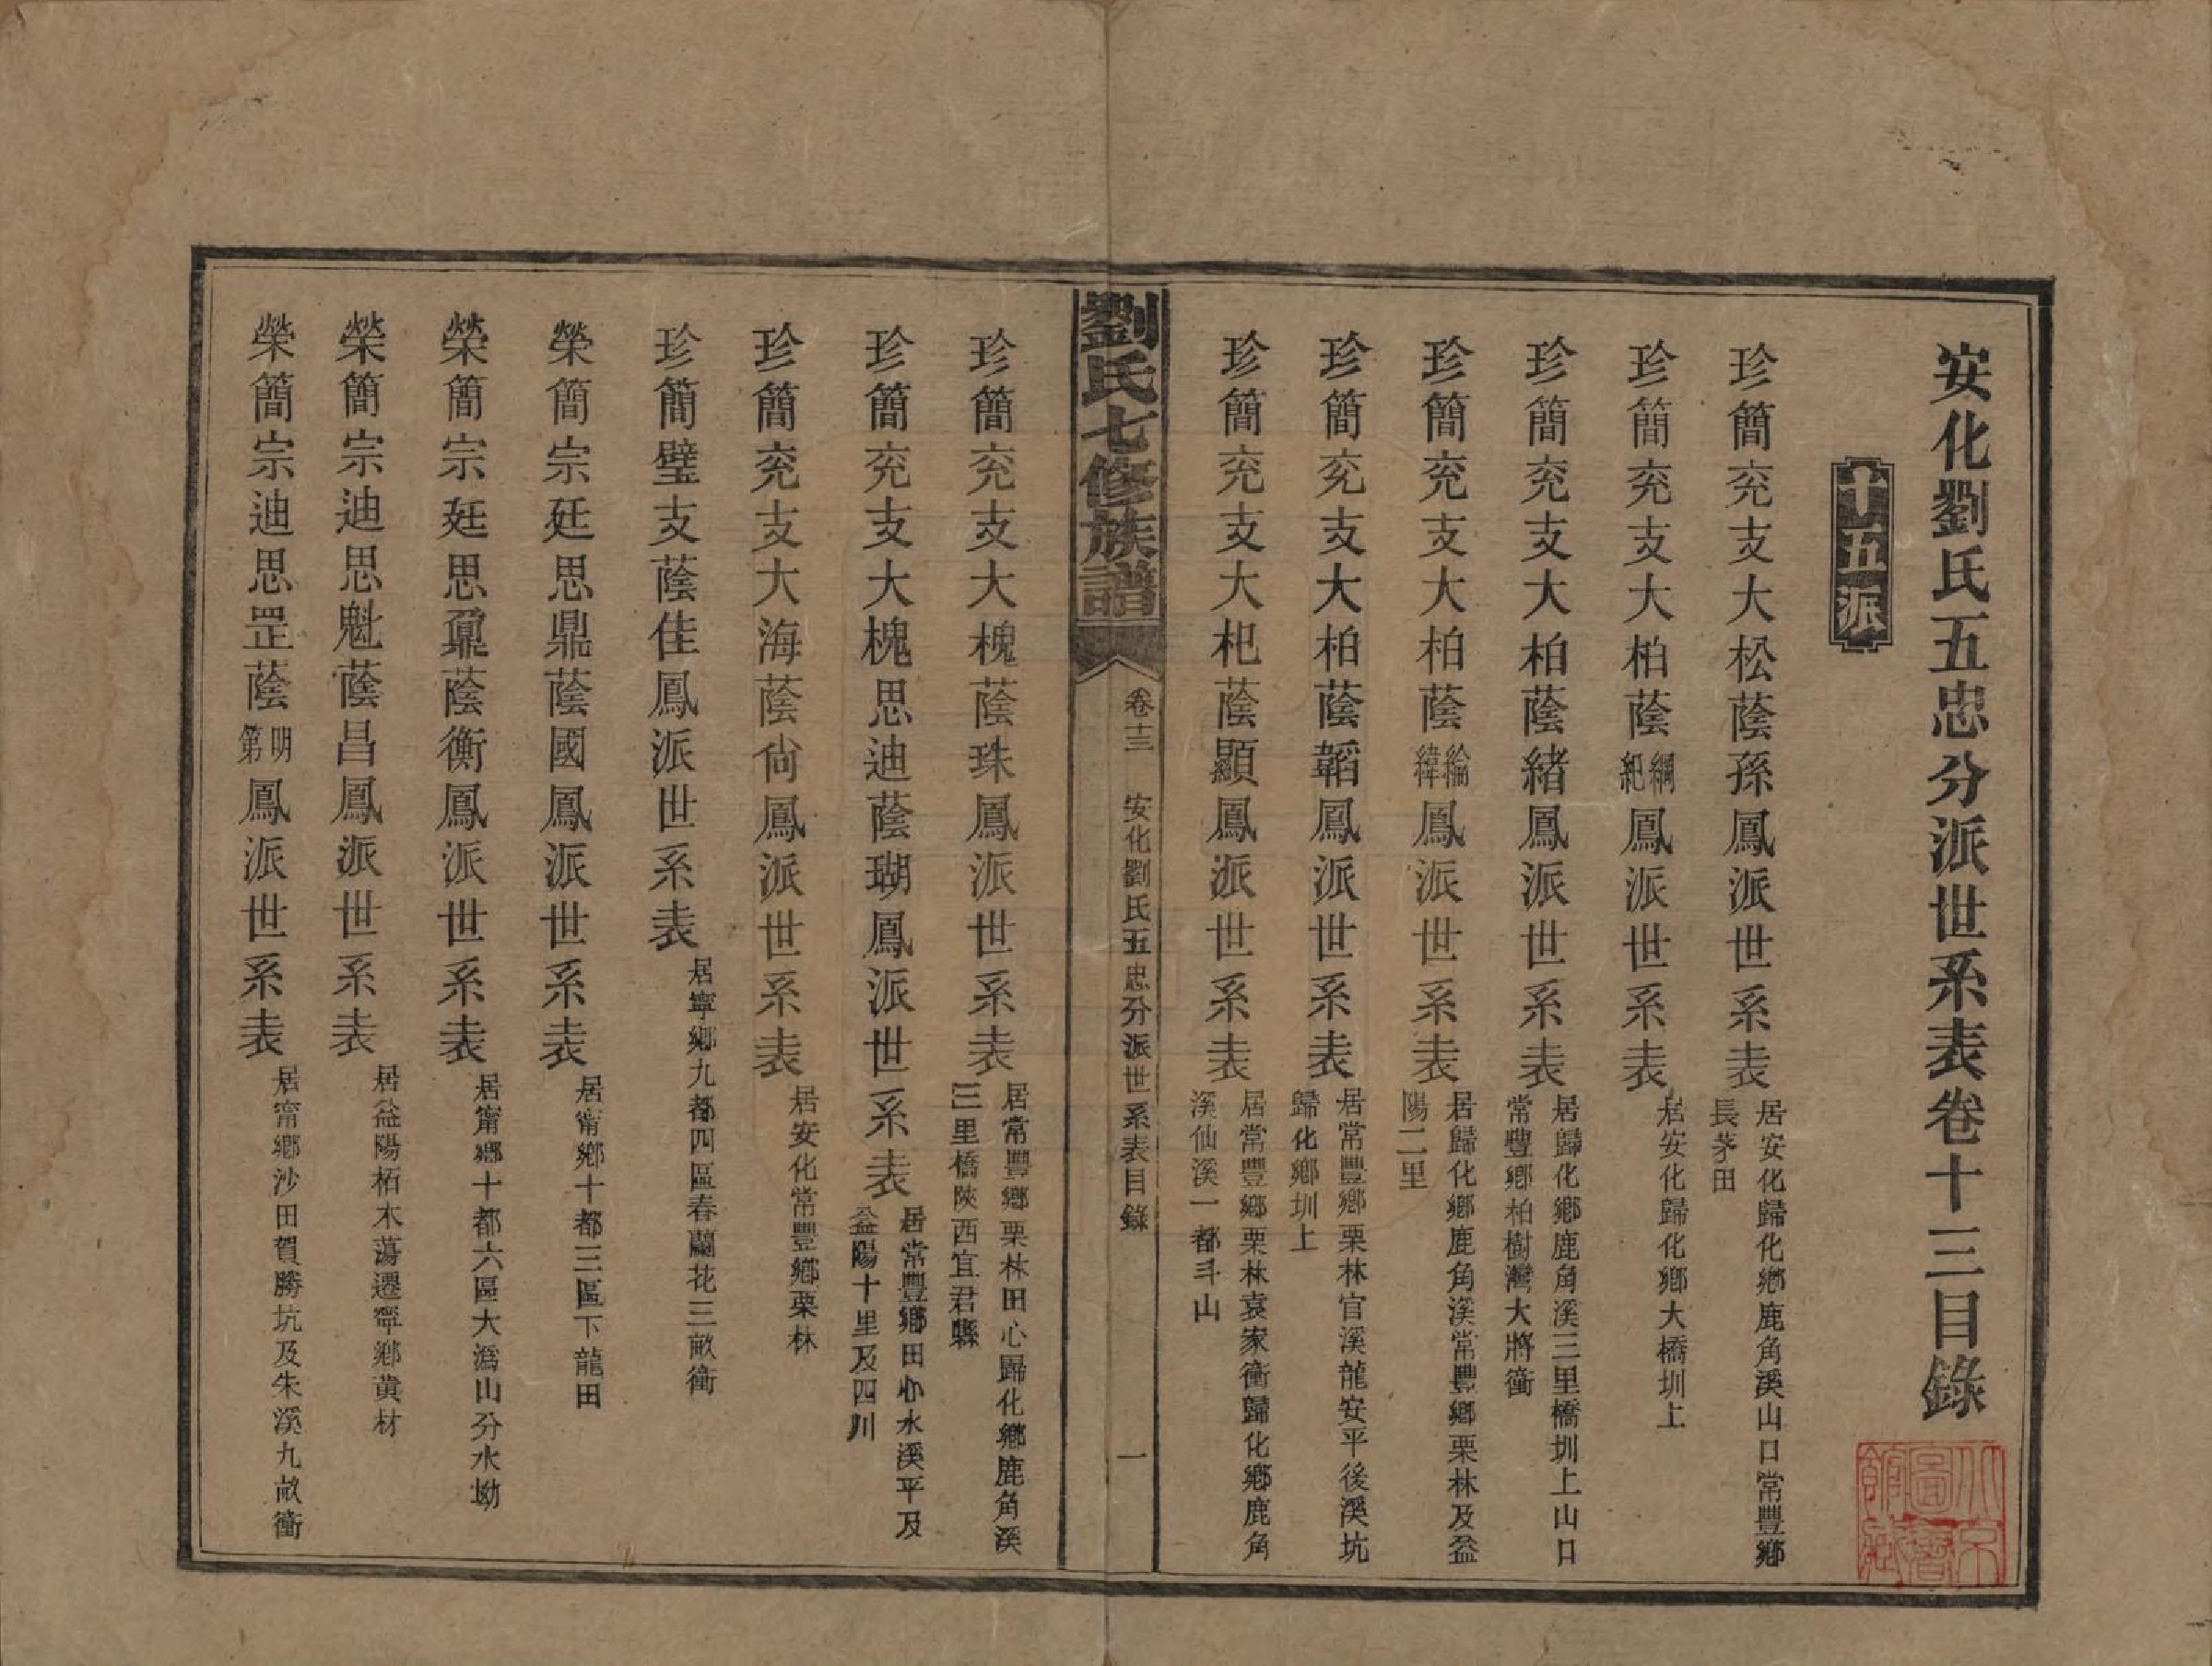 安化劉氏五忠分派世系表卷十三目錄
十五派
珍簡充支大松蔭孫鳳派世系表
居安化歸化鄉鹿角溪山口常豐鄉
長茅田
珍簡充支大柏蔭綱紀鳳派世系表
居安化歸化鄉大橋圳上
珍簡充支大柏蔭緒鳳派世系表
居歸化鄉鹿角溪三里橋圳上山口
常豐鄉柏樹灣大將衝
珍簡充支大柏蔭綸緯鳳派世系表
居歸化鄉鹿角溪常豐鄉栗林及益
陽二里
珍簡充支大柏蔭韜鳳派世系表
居常豐鄉栗林官溪龍安平後溪坑
歸化鄉圳上
珍簡充支大杞蔭顯鳳派世系表
居常豐鄉栗林袁家衝歸化鄉鹿角
溪仙溪一都斗山
劉氏七修族譜
卷十三
安化劉氏五忠分派世系表目錄
一
珍簡充支大槐蔭珠鳳派世系表
居常豐鄉栗林田心歸化鄉鹿角溪
三里橋陝西宜君縣
珍簡充支大槐思迪蔭瑚鳳派世系表
居常豐鄉田心水溪平及
益陽十里及四川
珍簡充支大海蔭尙鳳派世系表
居安化常豐鄉栗林
珍簡璧支蔭佳鳳派世系表
居寧鄉九都四區春蘭花三畝衝
榮簡宗廷思鼎蔭國鳳派世系表
居甯鄉十都三區下龍田
榮簡宗廷思鼐蔭衡鳳派世系表
居甯鄉十都六區大溈山分水坳
榮簡宗迪思魁蔭昌鳳派世系表
居益陽栢木蕩遷寧鄉黃材
榮簡宗迪思罡蔭明第鳳派世系表
居甯鄉沙田賀勝坑及朱溪九畝衝
北京圖書館藏